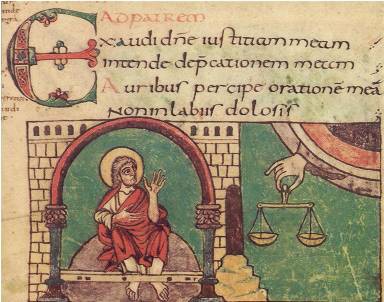 AD PATREM
Exaudi dñe iustitiam meam
intende dep̄cationem meam
Auribus percipe orationē meā
Non in labiis dolosis